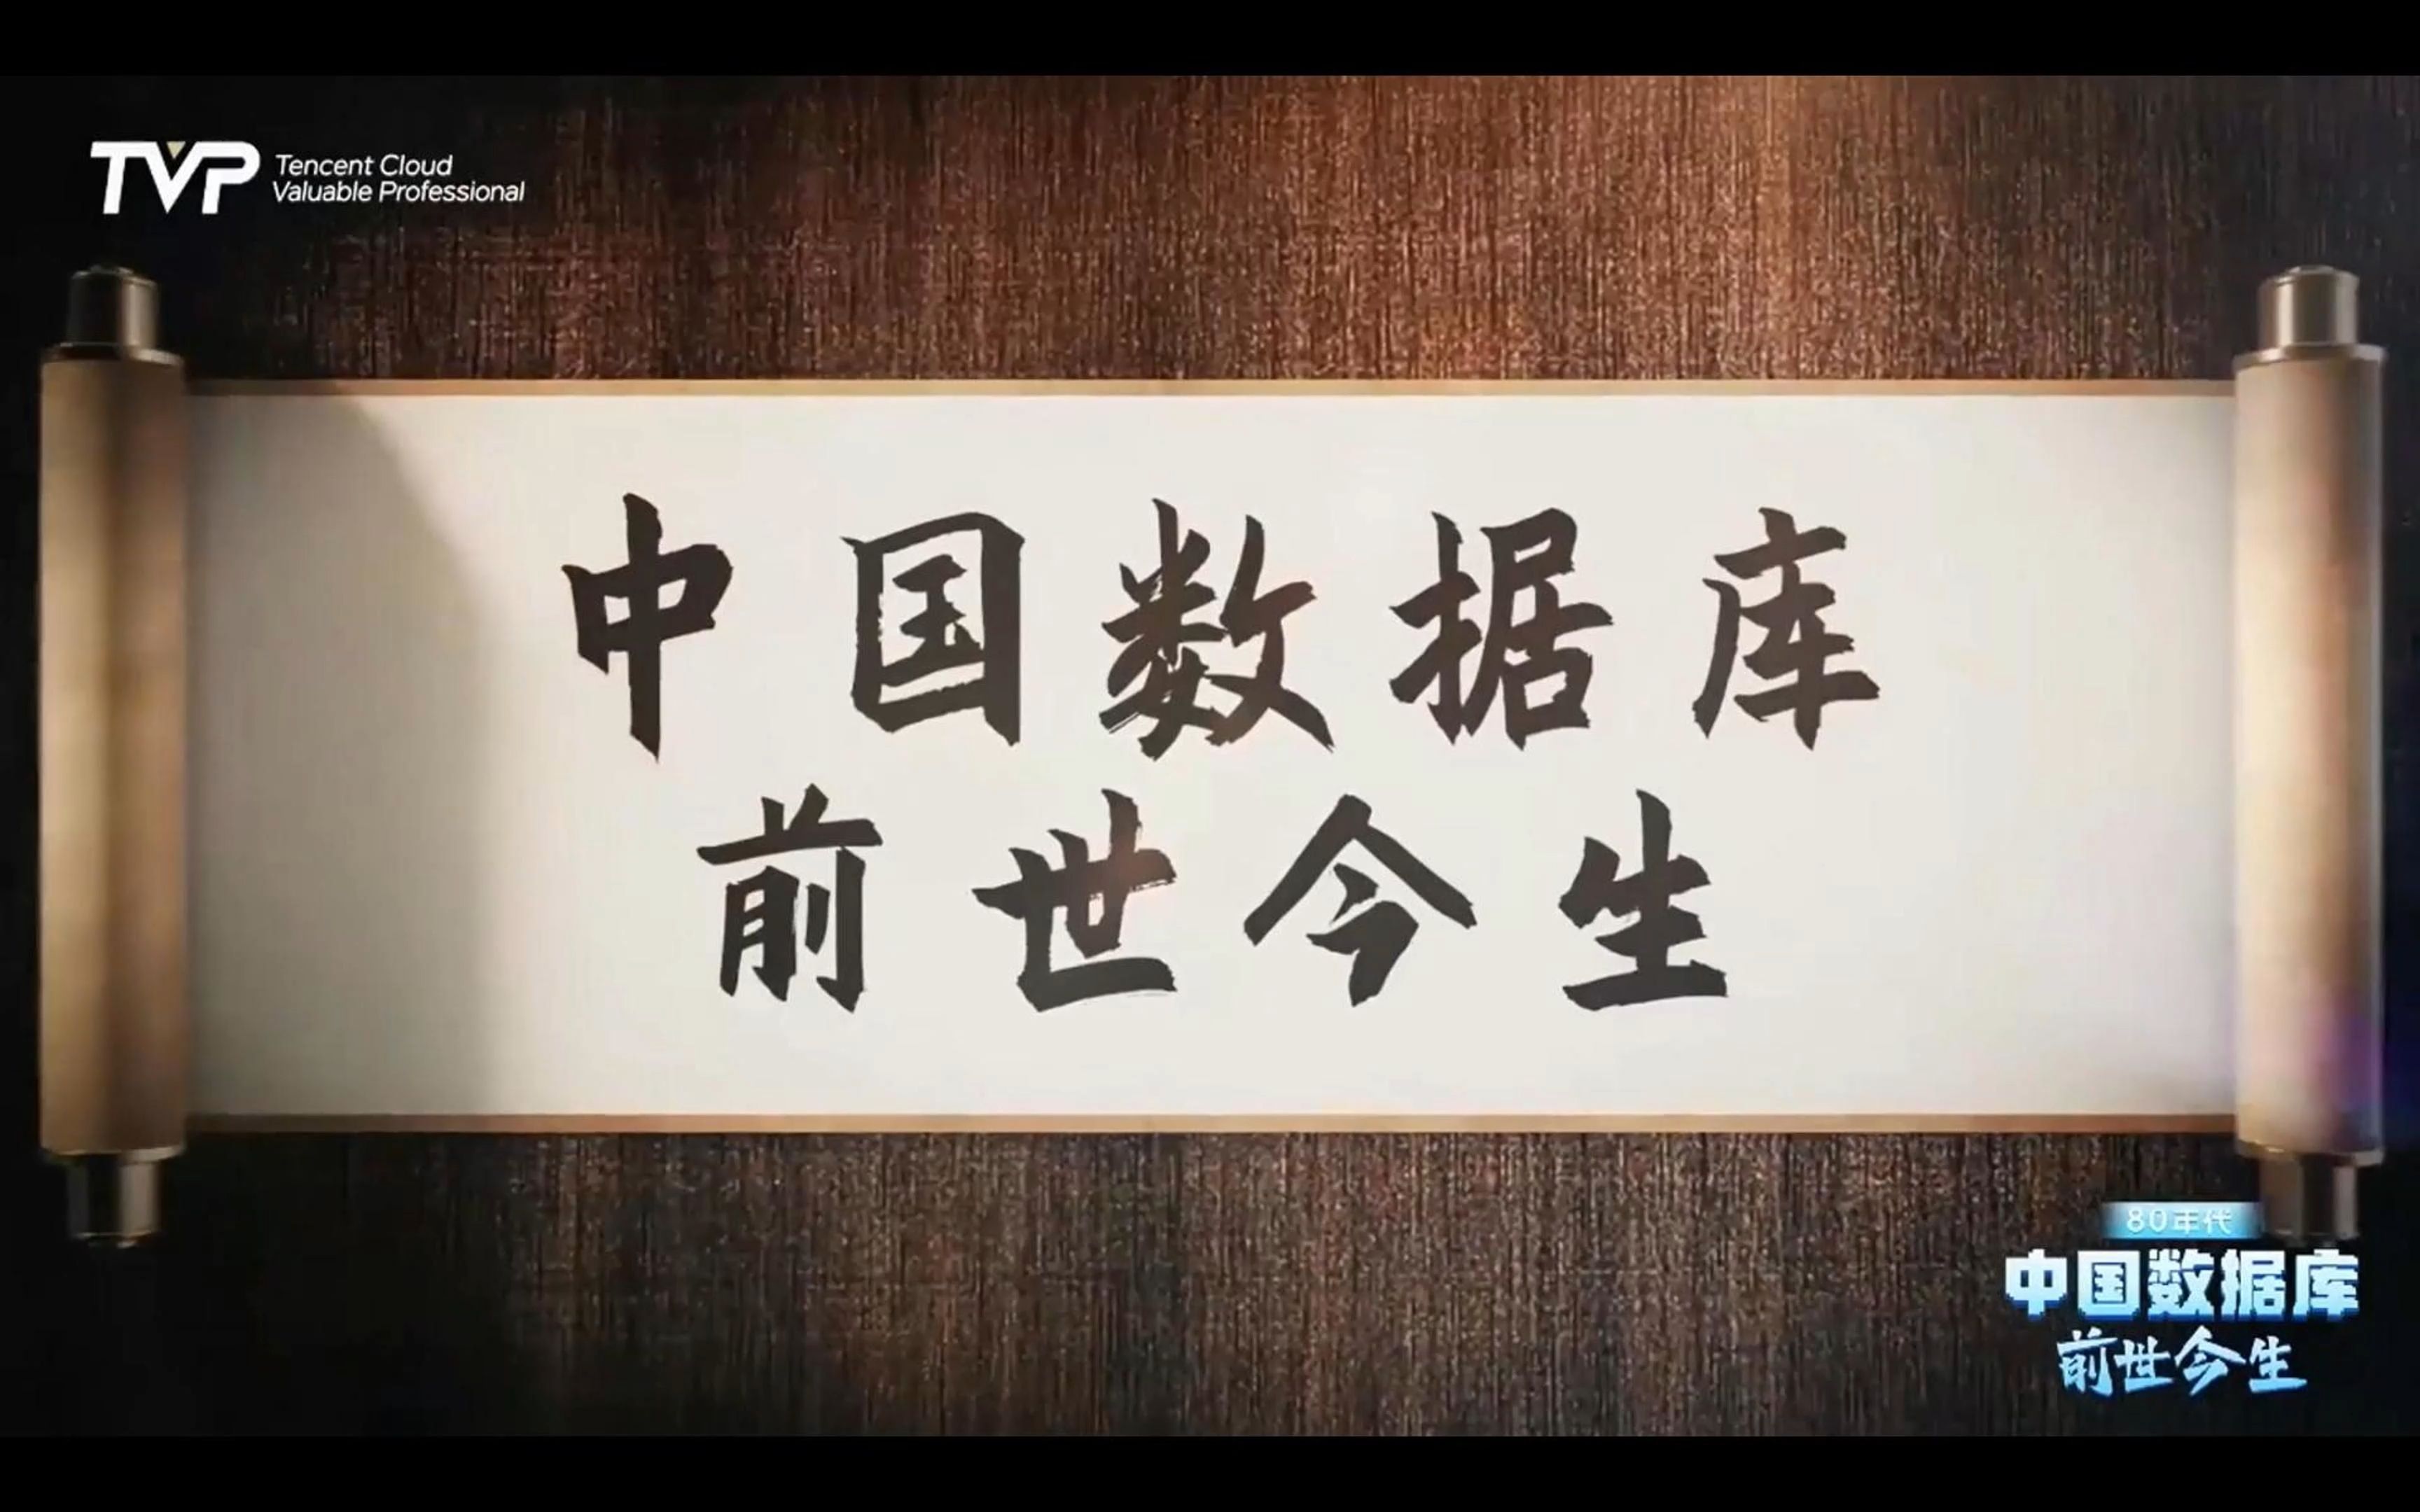 TVP
Tencent Cloud
Valuable Professional
中国数据库
前世今生
80年代
中国数据库
前世今生